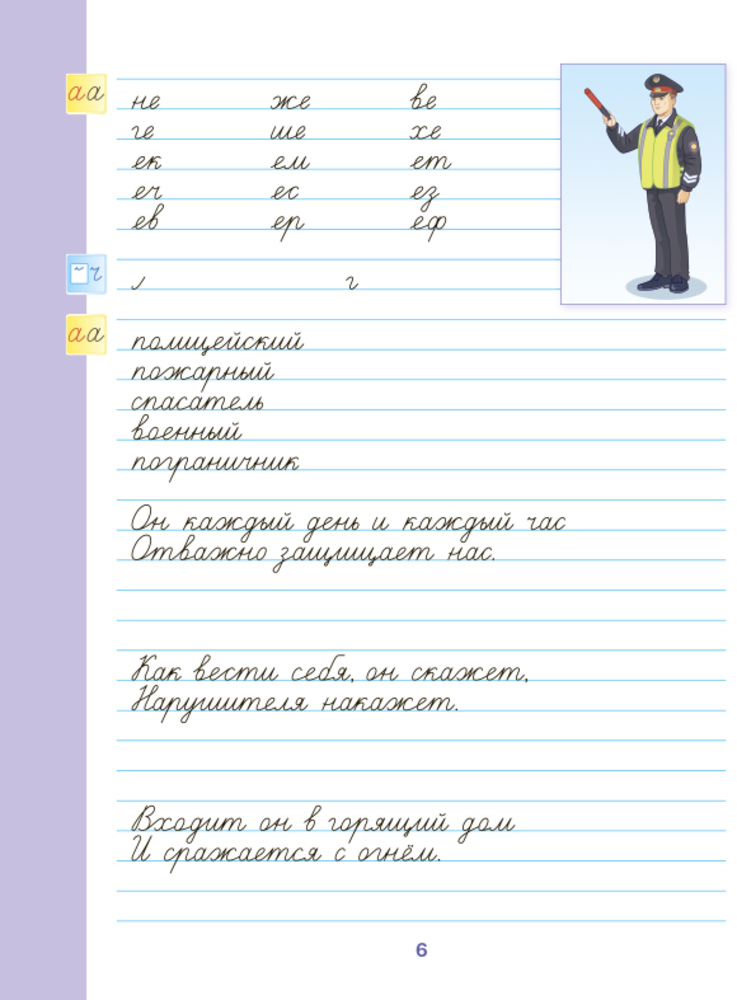 аа
не же ве
ге ше хе
ек ем ет
еч ес ез
ев ер еф
ч
г
аа
полицейский
пожарный
спасатель
военный
пограничник
Он каждый день и каждый час
Отважно защищает нас.
Как вести себя, он скажет,
Нарушителя накажет.
Входит он в горящий дом
И сражается с огнём.
6